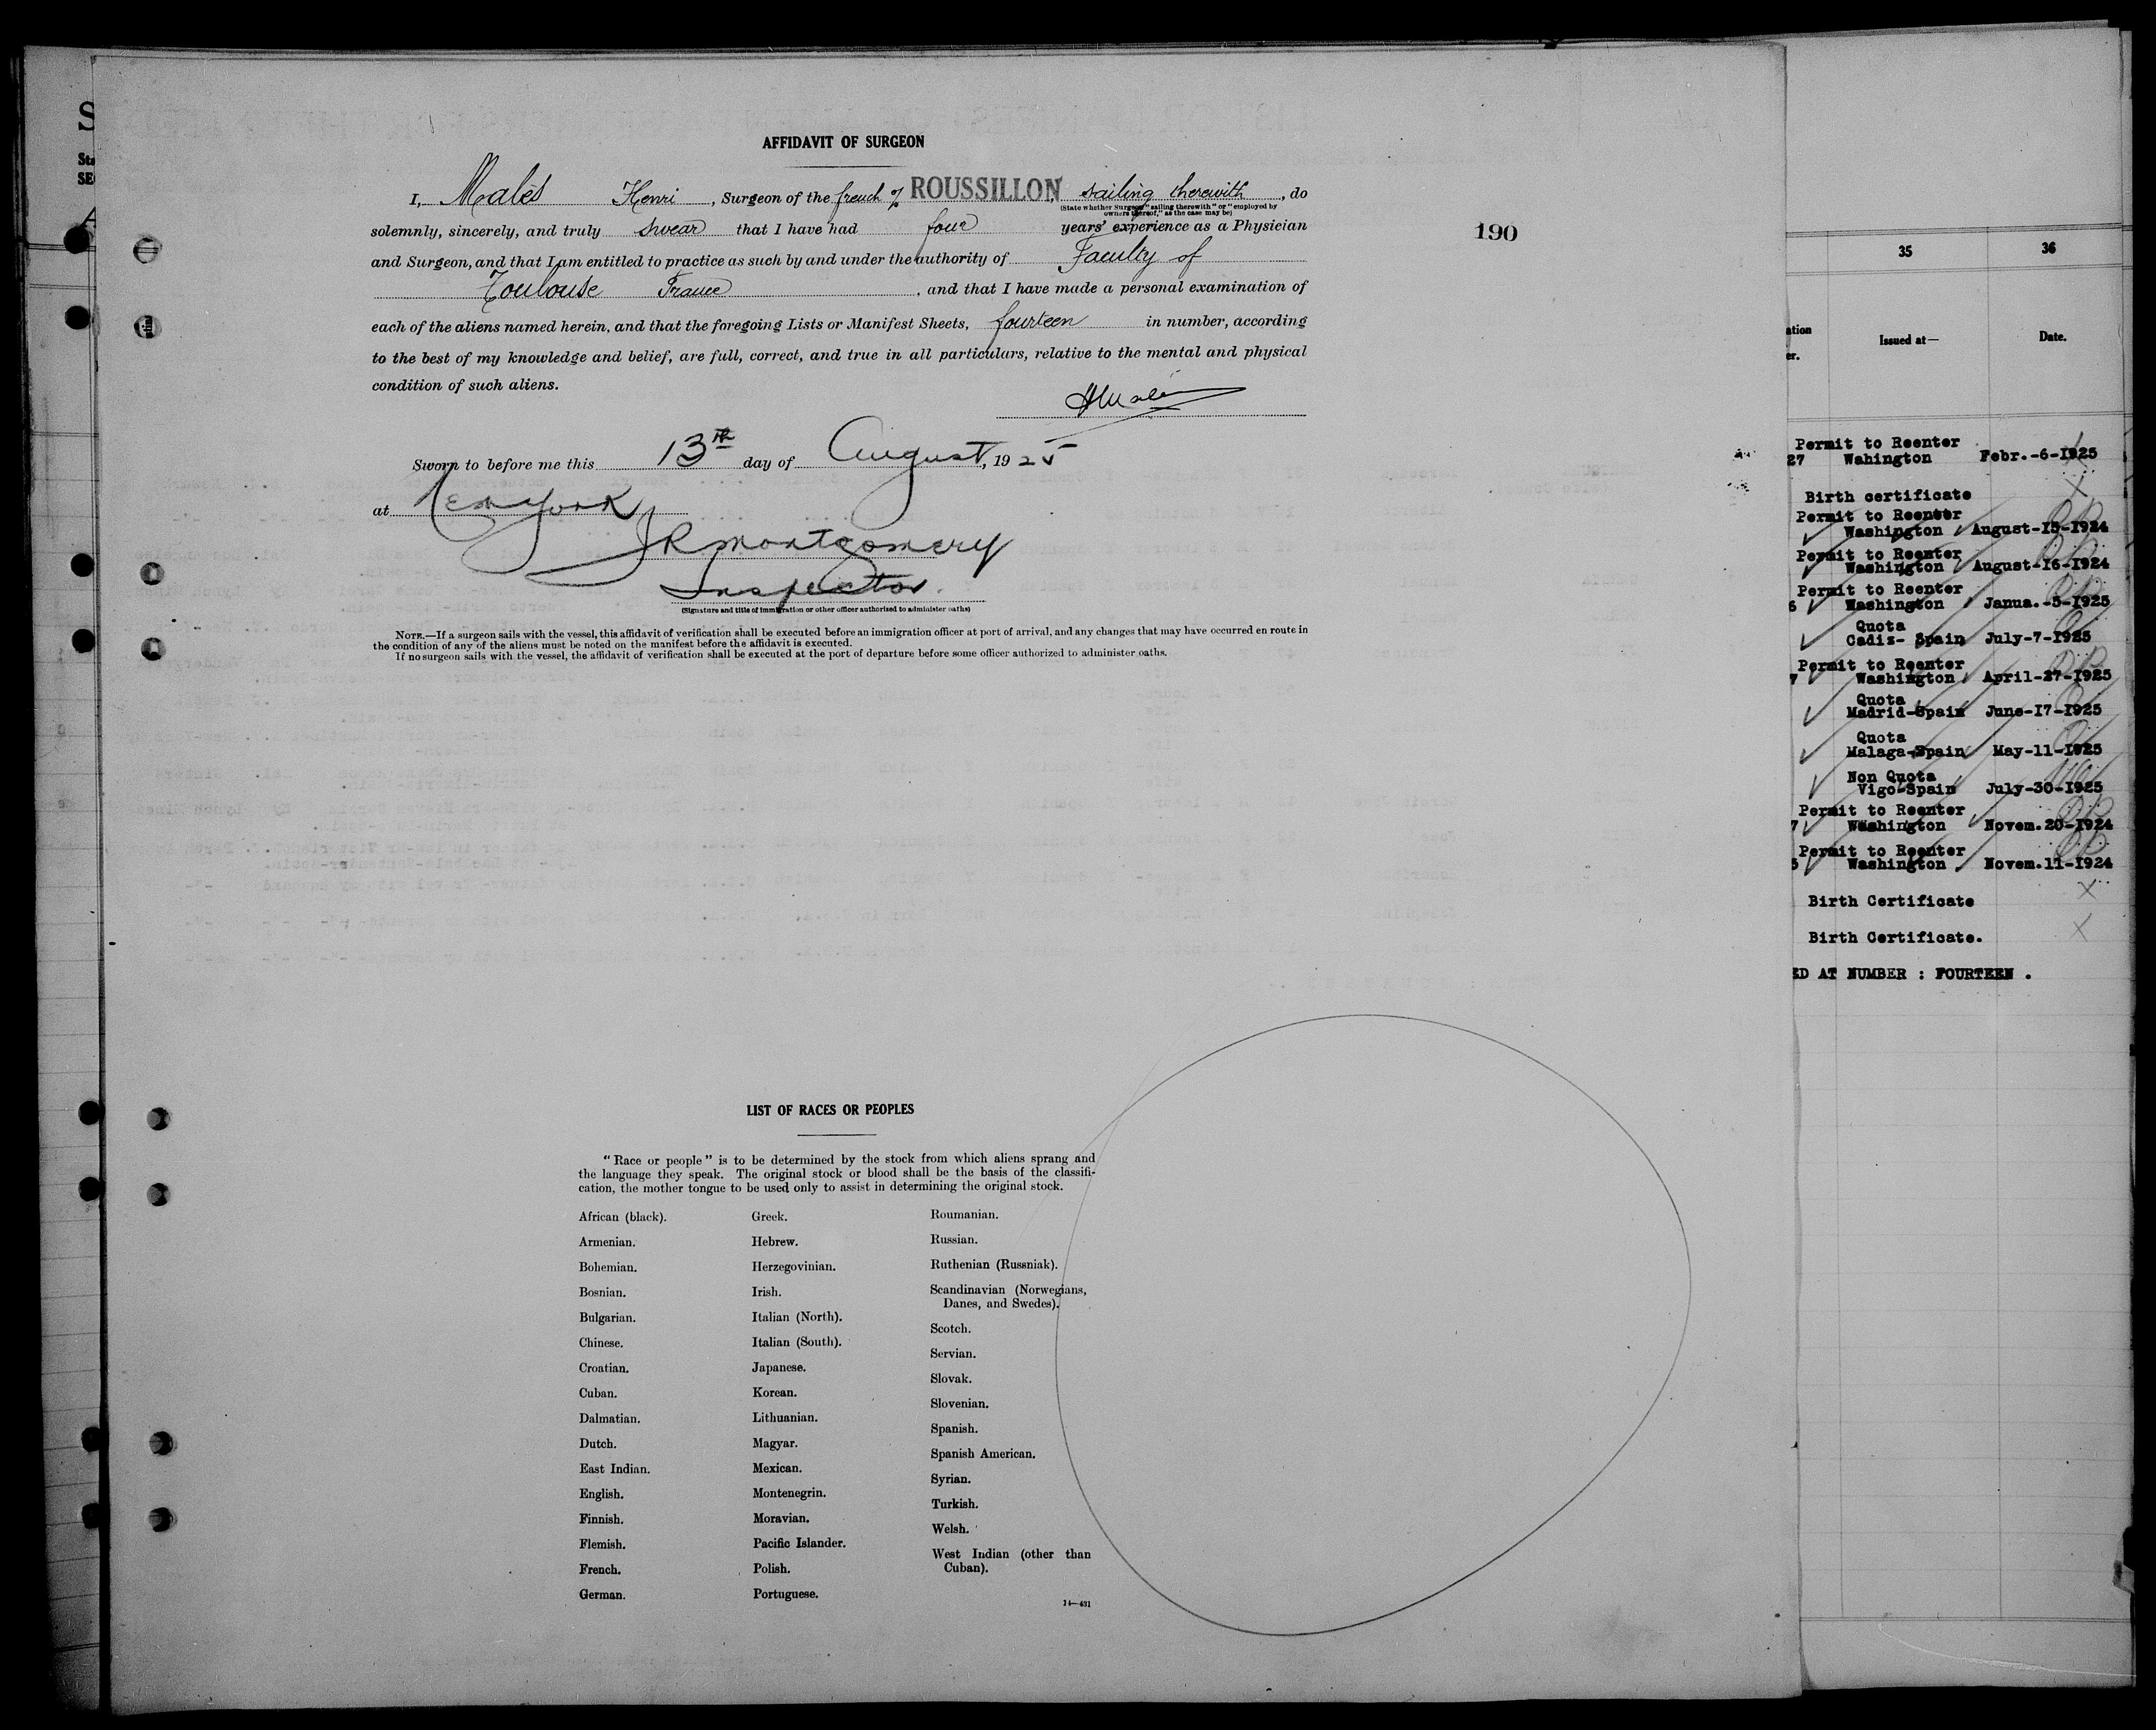 AFFIDAVIT OF SURGEON
I, Malès Henri, Surgeon of the french % ROUSSILLON, sailing therewith, do
(State whether Surgeon "sailing therewith" or "employed by
owners thereof," as the case may be)
solemnly, sincerely, and truly swear that I have had four years' experience as a Physician
and Surgeon, and that I am entitled to practice as such by and under the authority of Faculty of
Toulouse France, and that I have made a personal examination of
each of the aliens named herein, and that the foregoing Lists or Manifest Sheets, fourteen in number, according
to the best of my knowledge and belief, are full, correct, and true in all particulars, relative to the mental and physical
condition of such aliens.
Sworn to before me this 13th day of August, 1925
at New York
JR Montgomery
Inspector.
(Signature and title of immigration or other officer authorized to administer oaths)
NOTE.—If a surgeon sails with the vessel, this affidavit of verification shall be executed before an immigration officer at port of arrival, and any changes that may have occurred en route in
the condition of any of the aliens must be noted on the manifest before the affidavit is executed.
If no surgeon sails with the vessel, the affidavit of verification shall be executed at the port of departure before some officer authorized to administer oaths.
190
LIST OF RACES OR PEOPLES
"Race or people" is to be determined by the stock from which aliens sprang and
the language they speak. The original stock or blood shall be the basis of the classifi-
cation, the mother tongue to be used only to assist in determining the original stock.
African (black).
Armenian.
Bohemian.
Bosnian.
Bulgarian.
Chinese.
Croatian.
Cuban.
Dalmatian.
Dutch.
East Indian.
English.
Finnish.
Flemish.
French.
German.
Greek.
Hebrew.
Herzegovinian.
Irish.
Italian (North).
Italian (South).
Japanese.
Korean.
Lithuanian.
Magyar.
Mexican.
Montenegrin.
Moravian.
Pacific Islander.
Polish.
Portuguese.
Roumanian.
Russian.
Ruthenian (Russniak).
Scandinavian (Norwegians,
Danes, and Swedes).
Scotch.
Servian.
Slovak.
Slovenian.
Spanish.
Spanish American.
Syrian.
Turkish.
Welsh.
West Indian (other than
Cuban).
14—431
35 36
Issued at— Date.
Permit to Reenter
27 Wahington Febr.-6-1925
Birth certificate
Permit to Reenter
Washington August-15-1924
Permit to Reenter
Washington August-16-1924
Permit to Reenter
6 Washington Janua.-5-1925
Quota
Cadiz- Spain July-7-1925
Permit to Reenter
7 Washington April-27-1925
Quota
Madrid-Spain June-17-1925
Quota
Malaga-Spain May-11-1925
Non Quota
Vigo-Spain July-30-1925
Permit to Reenter
7 Washington Novem.20-1924
Permit to Reenter
5 Washington Novem.11-1924
Birth Certificate
Birth Certificate.
ED AT NUMBER : FOURTEEN .